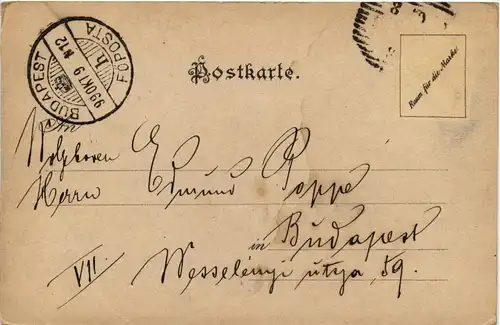 BUDAPEST
FŐPOSTA
99 OKT 9 N12
h
Postkarte.
Raum für die Marke
An
Herrn Edmund Poppe
in Budapest
VII. Wesselényi utcza 59.